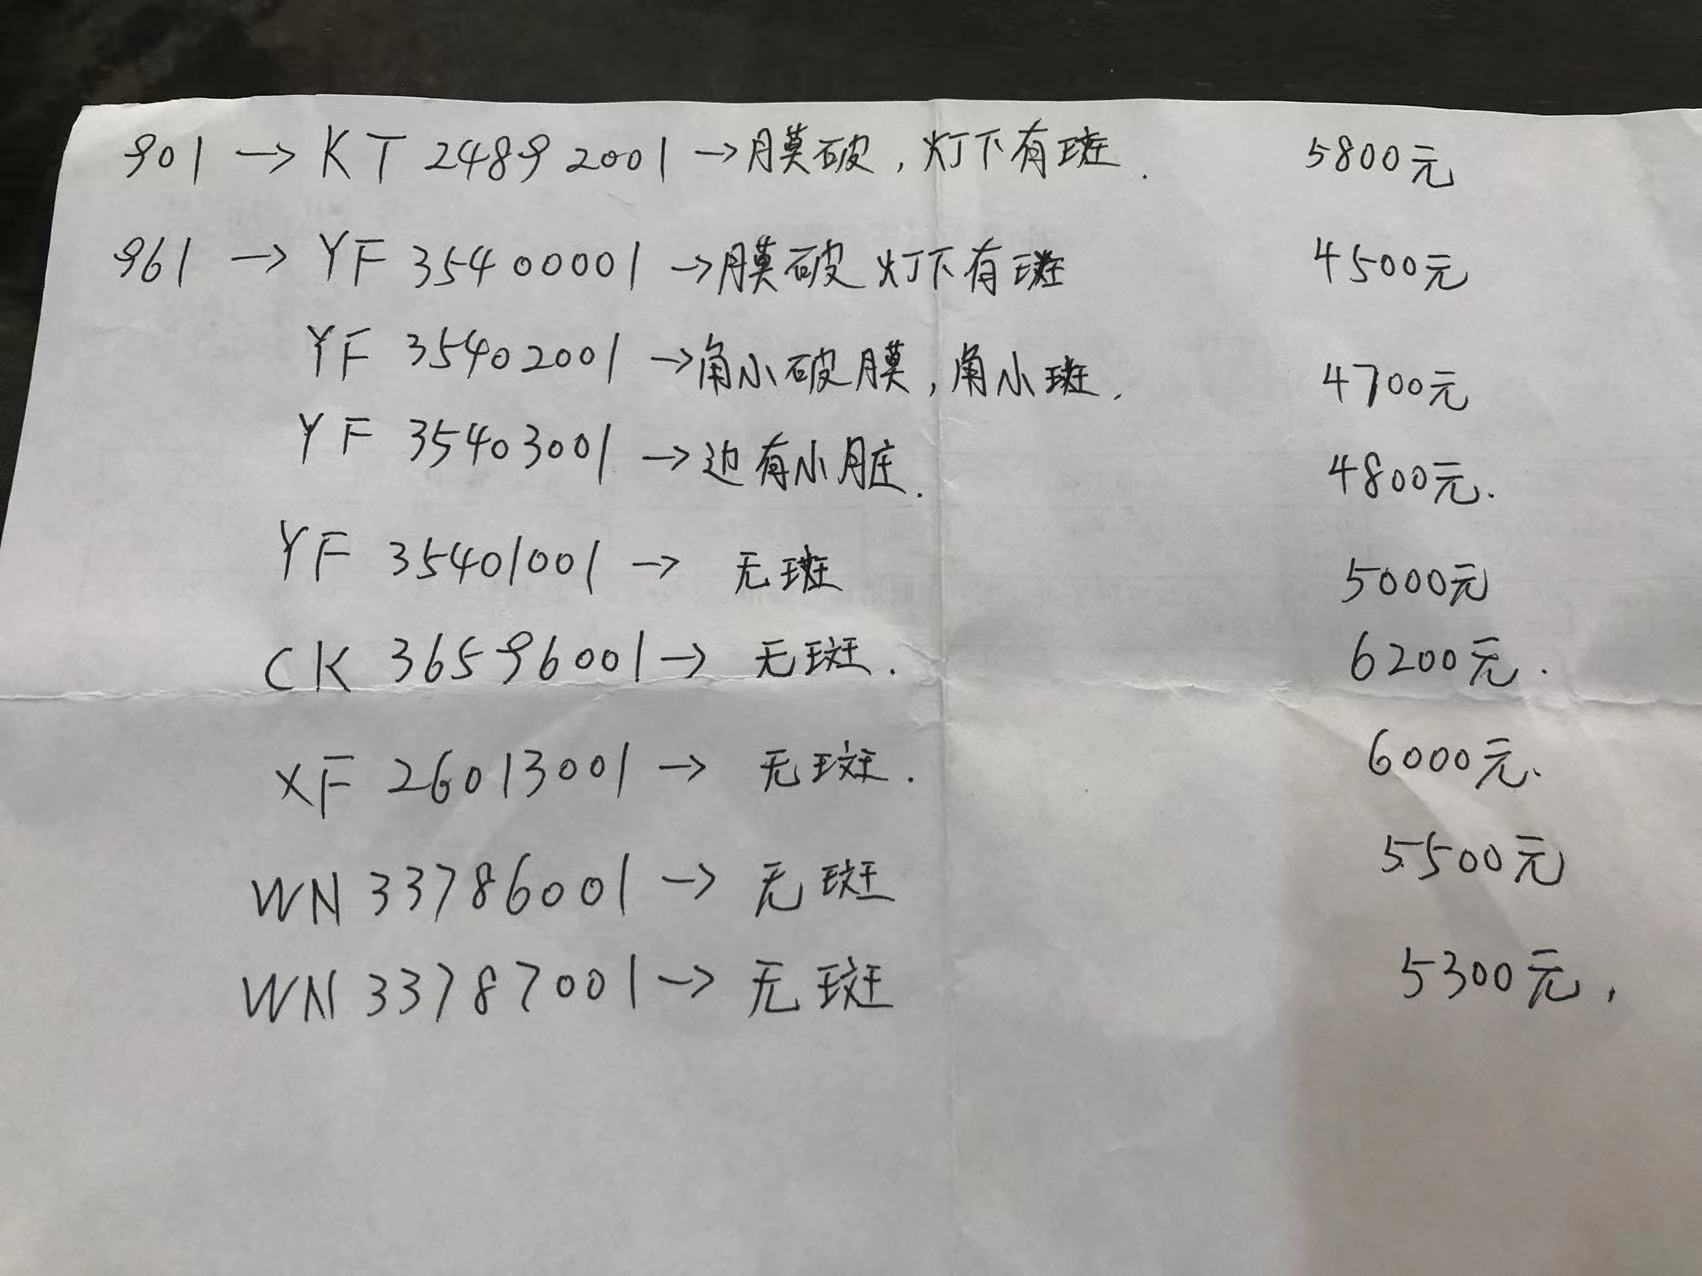 901 → KT 24892001 → 膜破，灯下有斑. 5800元
961 → YF 35400001 → 膜破 灯下有斑 4500元
YF 35402001 → 角小破膜，角小斑. 4700元
YF 35403001 → 边有小脏. 4800元.
YF 35401001 → 无斑 5000元
CK 36596001 → 无斑. 6200元.
XF 26013001 → 无斑. 6000元.
WN 33786001 → 无斑 5500元
WN 33787001 → 无斑 5300元,